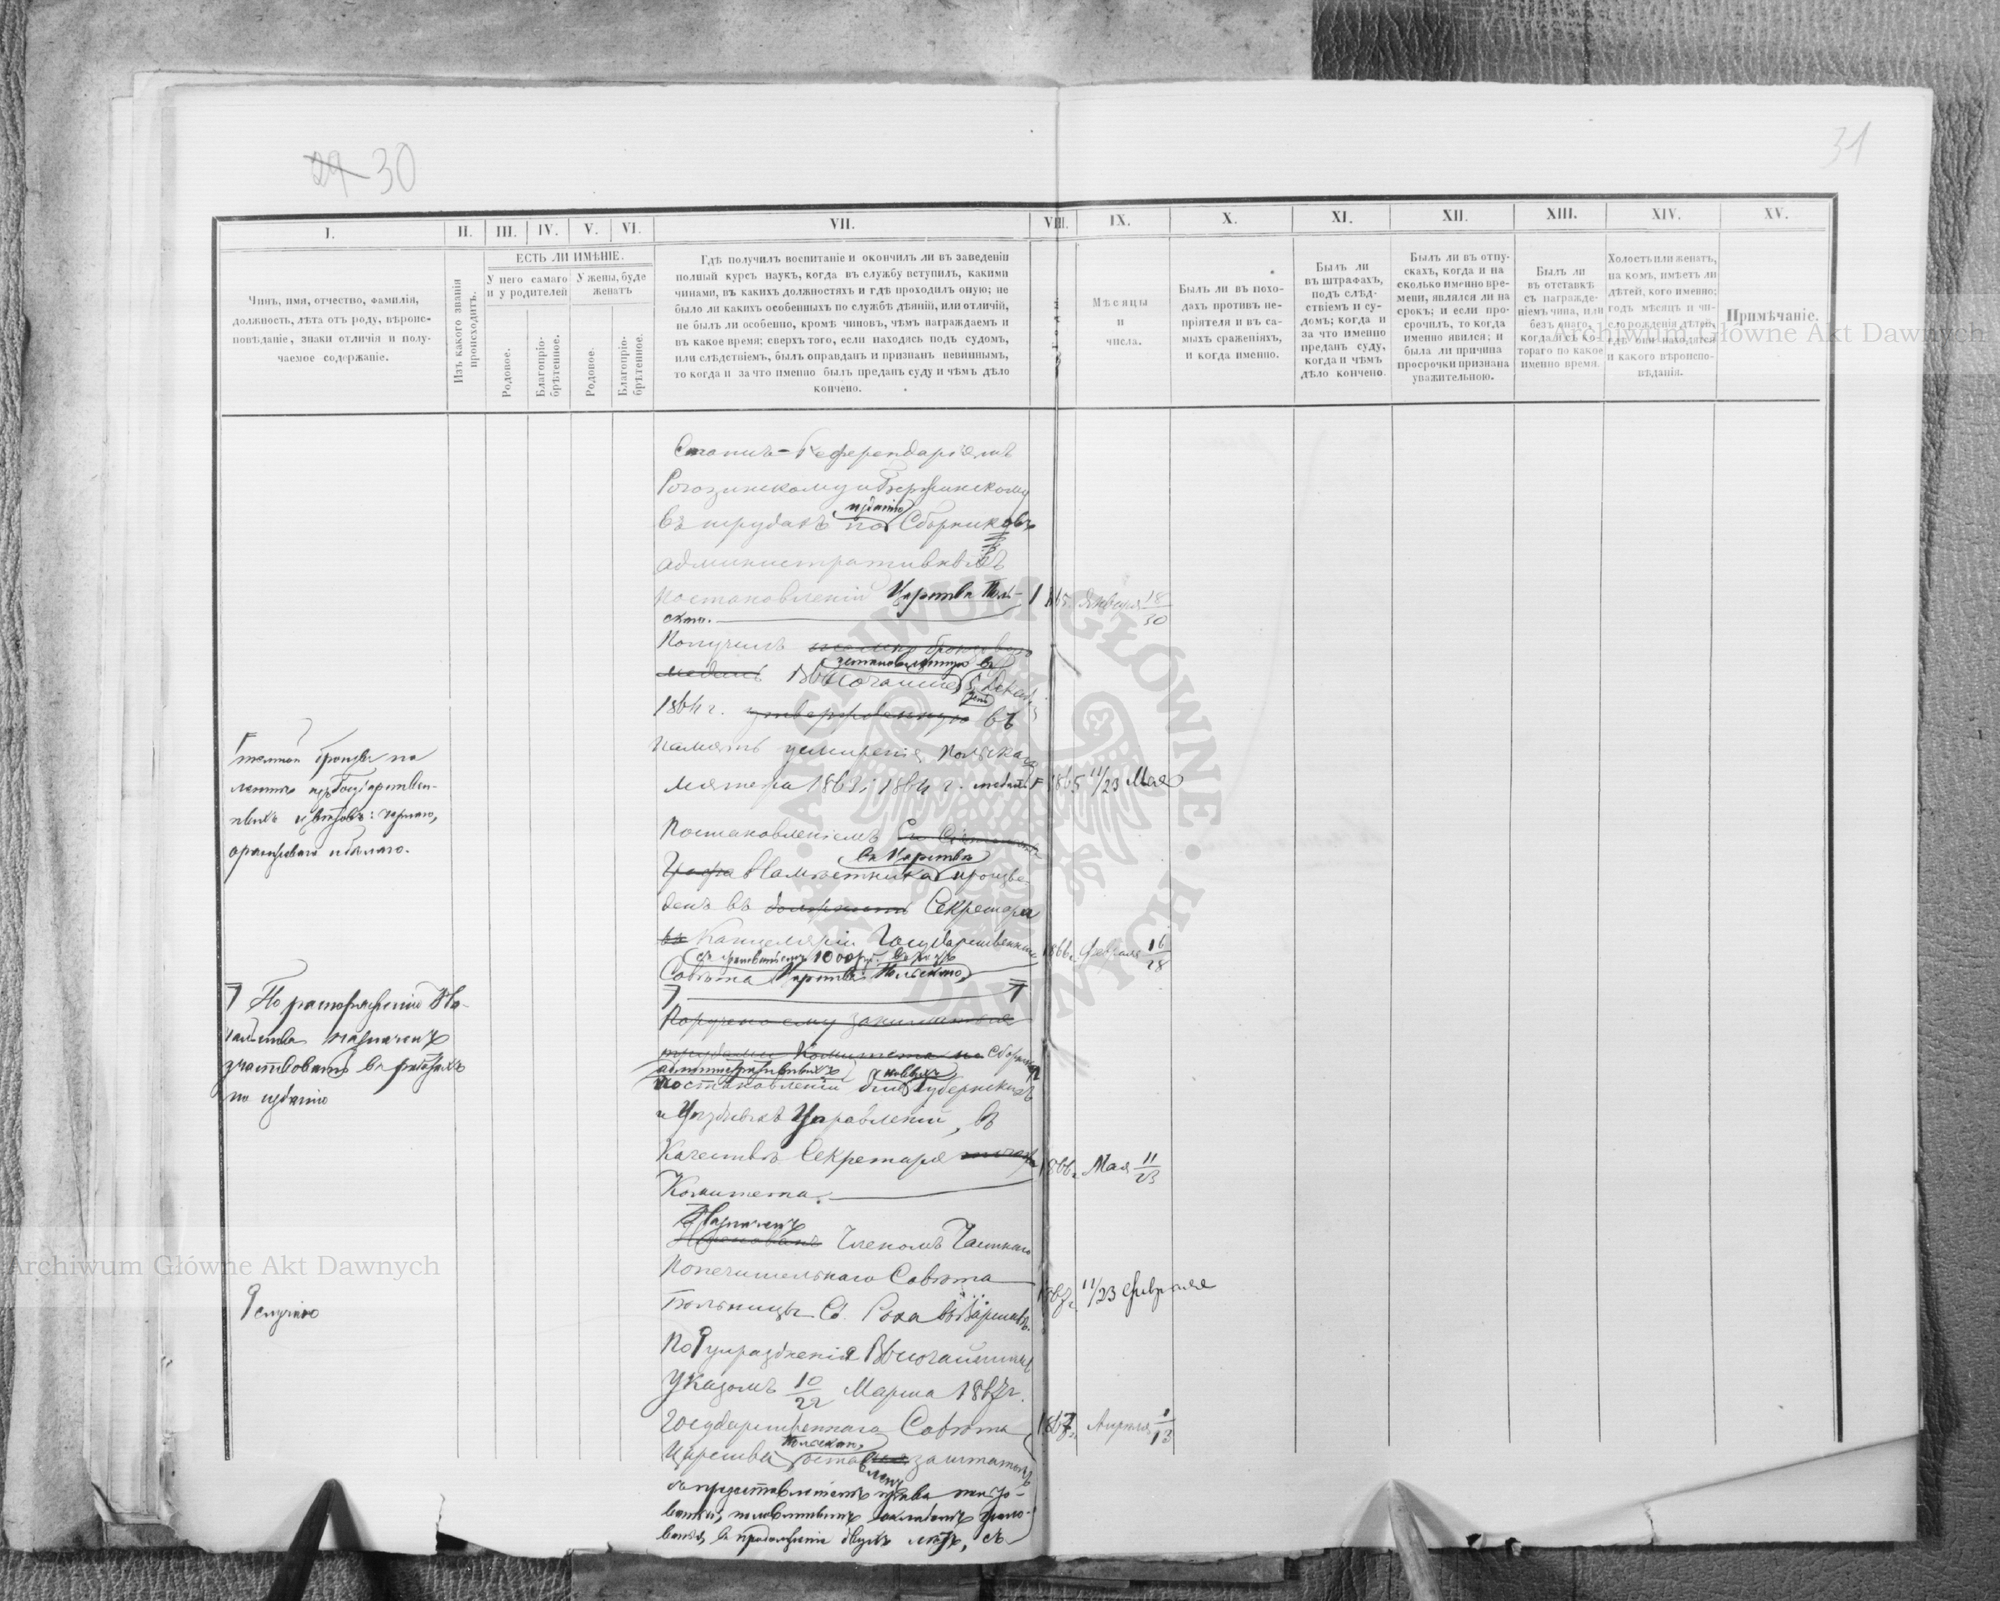 29 30
31
I.
II.
III.
IV.
V.
VI.
VII.
VIII.
IX.
X.
XI.
XII.
XIII.
XIV.
XV.
Чинъ, имя, отчество, фамилія,
должность, лѣта отъ роду, вѣроис-
повѣданіе, знаки отличія и полу-
чаемое содержаніе.
Изъ какого званія
происходитъ.
ЕСТЬ ЛИ ИМѢНІЕ.
У него самаго
и у родителей
У жены, буде
женатъ
Родовое.
Благопріо-
брѣтенное.
Родовое.
Благопріо-
брѣтенное.
Гдѣ получилъ воспитаніе и окончилъ ли въ заведеніи
полный курсъ наукъ, когда въ службу вступилъ, какими
чинами, въ какихъ должностяхъ и гдѣ проходилъ оную; не
было ли какихъ особенныхъ по службѣ дѣяній, или отличій,
не былъ ли особенно, кромѣ чиновъ, чѣмъ награждаемъ и
въ какое время; сверхъ того, если находясь подъ судомъ,
или слѣдствіемъ, былъ оправданъ и признанъ невиннымъ,
то когда и за что именно былъ преданъ суду и чѣмъ дѣло
кончено.
Мѣсяцы
и
числа.
Былъ ли въ похо-
дахъ противъ не-
пріятеля и въ са-
мыхъ сраженіяхъ,
и когда именно.
Былъ ли
въ штрафахъ,
подъ слѣд-
ствіемъ и су-
домъ; когда и
за что именно
преданъ суду,
когда и чѣмъ
дѣло кончено.
Былъ ли въ отпу-
скахъ, когда и на
сколько именно вре-
мени, являлся ли на
срокъ; и если про-
срочилъ, то когда
именно явился; и
была ли причина
просрочки признана
уважительною.
Былъ ли
въ отставкѣ
съ награжде-
ніемъ чина, или
безъ онаго,
когда и съ ко-
тораго по какое
именно время.
Холостъ или женатъ,
на комъ, имѣетъ ли
дѣтей, кого именно;
годъ мѣсяцъ и чи-
сло рожденія дѣтей,
гдѣ они находятся
и какого вѣроиспо-
вѣданія.
Примѣчаніе.
Статсъ-Референдаріемъ
Рогозинскому и
изданію
въ трудахъ по Сборниковъ
административныхъ
постановленій Царства Поль- 1865 г. Января 18/30
скаго.
Получилъ
установленную въ
Высочайше
1864 г. утвержденную въ
память усмиренія Польскаго
мятежа 1863 и 1864 г. медаль 1865 11/23 Мая
темной бронзы на
лентѣ изъ Государствен-
ныхъ цвѣтовъ: чернаго,
оранжеваго и бѣлаго.
Постановленіемъ
въ Царствѣ
Графа Намѣстника произве-
денъ въ должность Секретаря
въ Канцеляріи Государственнаго 1866 г. Февраля 16/28
съ жалованьемъ 1000 р. въ годъ
Совѣта Царства Польскаго
По распоряженію На-
чальства назначенъ
участвовать въ работахъ
по изданію
Поручено ему заниматься
трудами Комитета по Сборнику
административныхъ новыхъ
постановленій для Губернскихъ
и Уѣздныхъ Управленій, въ
качествѣ Секретаря 1866 г. Мая 11/23
Комитета.
Назначенъ
Членомъ Частнаго
Попечительнаго Совѣта
Больницы Св. Роха въ Варшавѣ 1867 г. 11/23 Февраля
случаю
По упраздненія Высочайшимъ
Указомъ 10/22 Марта 1867 г.
Государственнаго Совѣта 1867 г. Апрѣля 1/13
Польскаго
Царства оставленъ за штатомъ
съ предоставленіемъ права
въ продолженіи двухъ лѣтъ, съ
Archiwum Główne Akt Dawnych
Archiwum Główne Akt Dawnych
ARCHIWUM GŁÓWNE AKT DAWNYCH